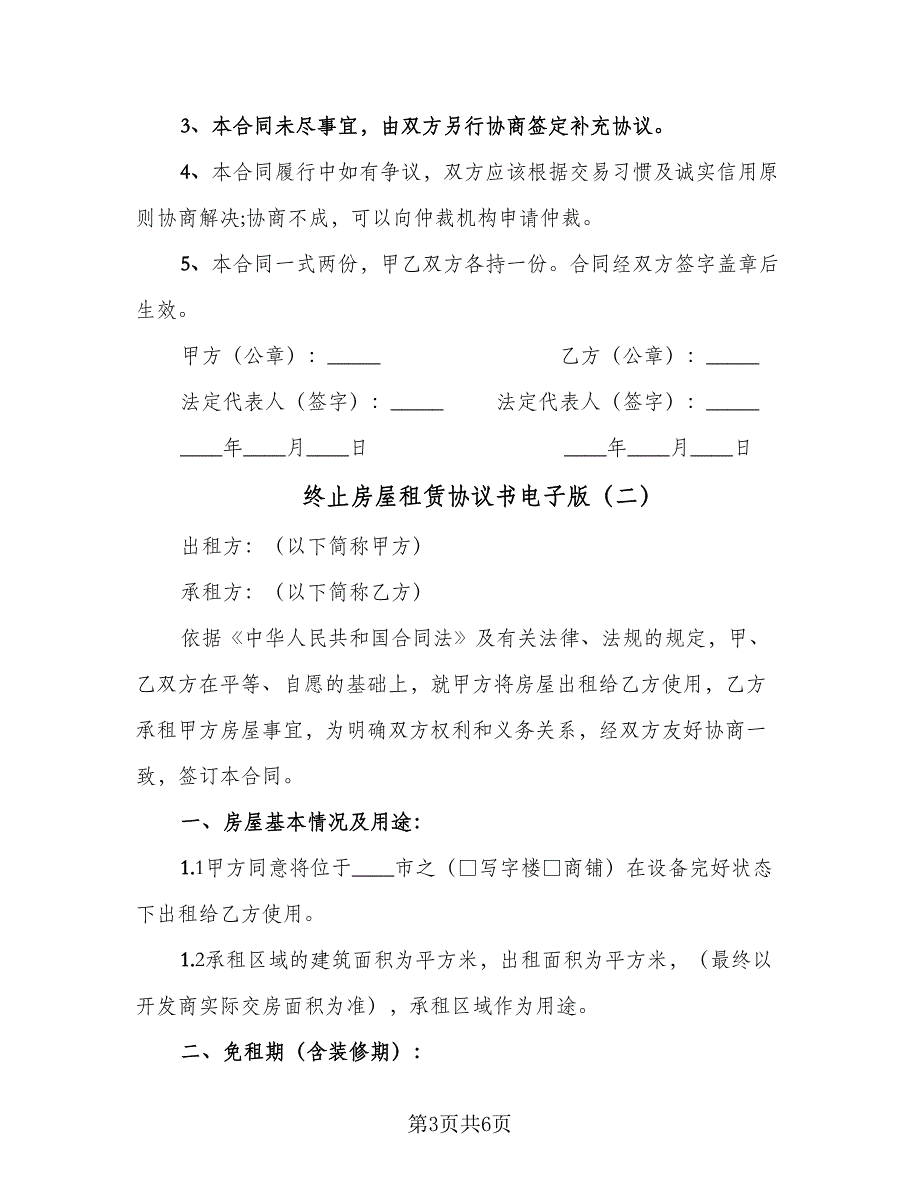 3、本合同未尽事宜，由双方另行协商签定补充协议。
4、本合同履行中如有争议，双方应该根据交易习惯及诚实信用原
则协商解决;协商不成，可以向仲裁机构申请仲裁。
5、本合同一式两份，甲乙双方各持一份。合同经双方签字盖章后
生效。
甲方（公章）：_____ 乙方（公章）：_____
法定代表人（签字）：_____ 法定代表人（签字）：_____
____年____月____日 ____年____月____日
终止房屋租赁协议书电子版（二）
出租方：（以下简称甲方）
承租方：（以下简称乙方）
依据《中华人民共和国合同法》及有关法律、法规的规定，甲、
乙双方在平等、自愿的基础上，就甲方将房屋出租给乙方使用，乙方
承租甲方房屋事宜，为明确双方权利和义务关系，经双方友好协商一
致，签订本合同。
一、房屋基本情况及用途：
1.1甲方同意将位于____市之（□写字楼□商铺）在设备完好状态
下出租给乙方使用。
1.2承租区域的建筑面积为平方米，出租面积为平方米，（最终以
开发商实际交房面积为准），承租区域作为用途。
二、免租期（含装修期）：
第3页共6页